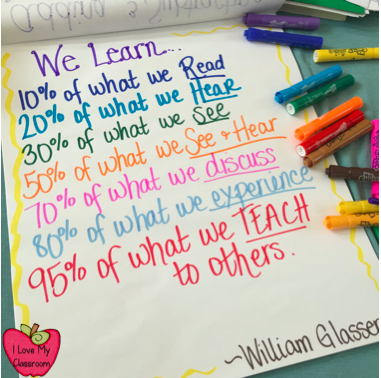 Adding & Subtracting
We Learn...
10% of what we Read
20% of what we Hear
30% of what we See
50% of what we See + Hear
70% of what we discuss
80% of what we experience
95% of what we TEACH
to others.
~William Glasser
I Love My
Classroom